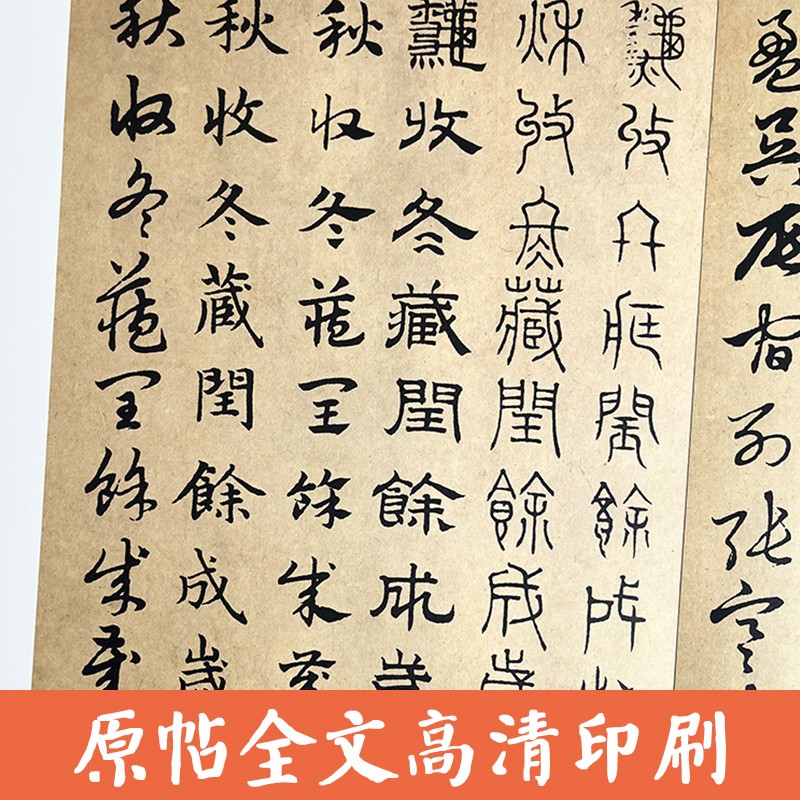 盈昃辰宿列張寒
秋收冬藏閏餘成
秋收冬藏閏餘成
秋收冬藏閏餘成歲
秋收冬藏閏餘成歲
秋收冬藏閏餘成歲
秋收冬藏閏餘成歲
原帖全文高清印刷